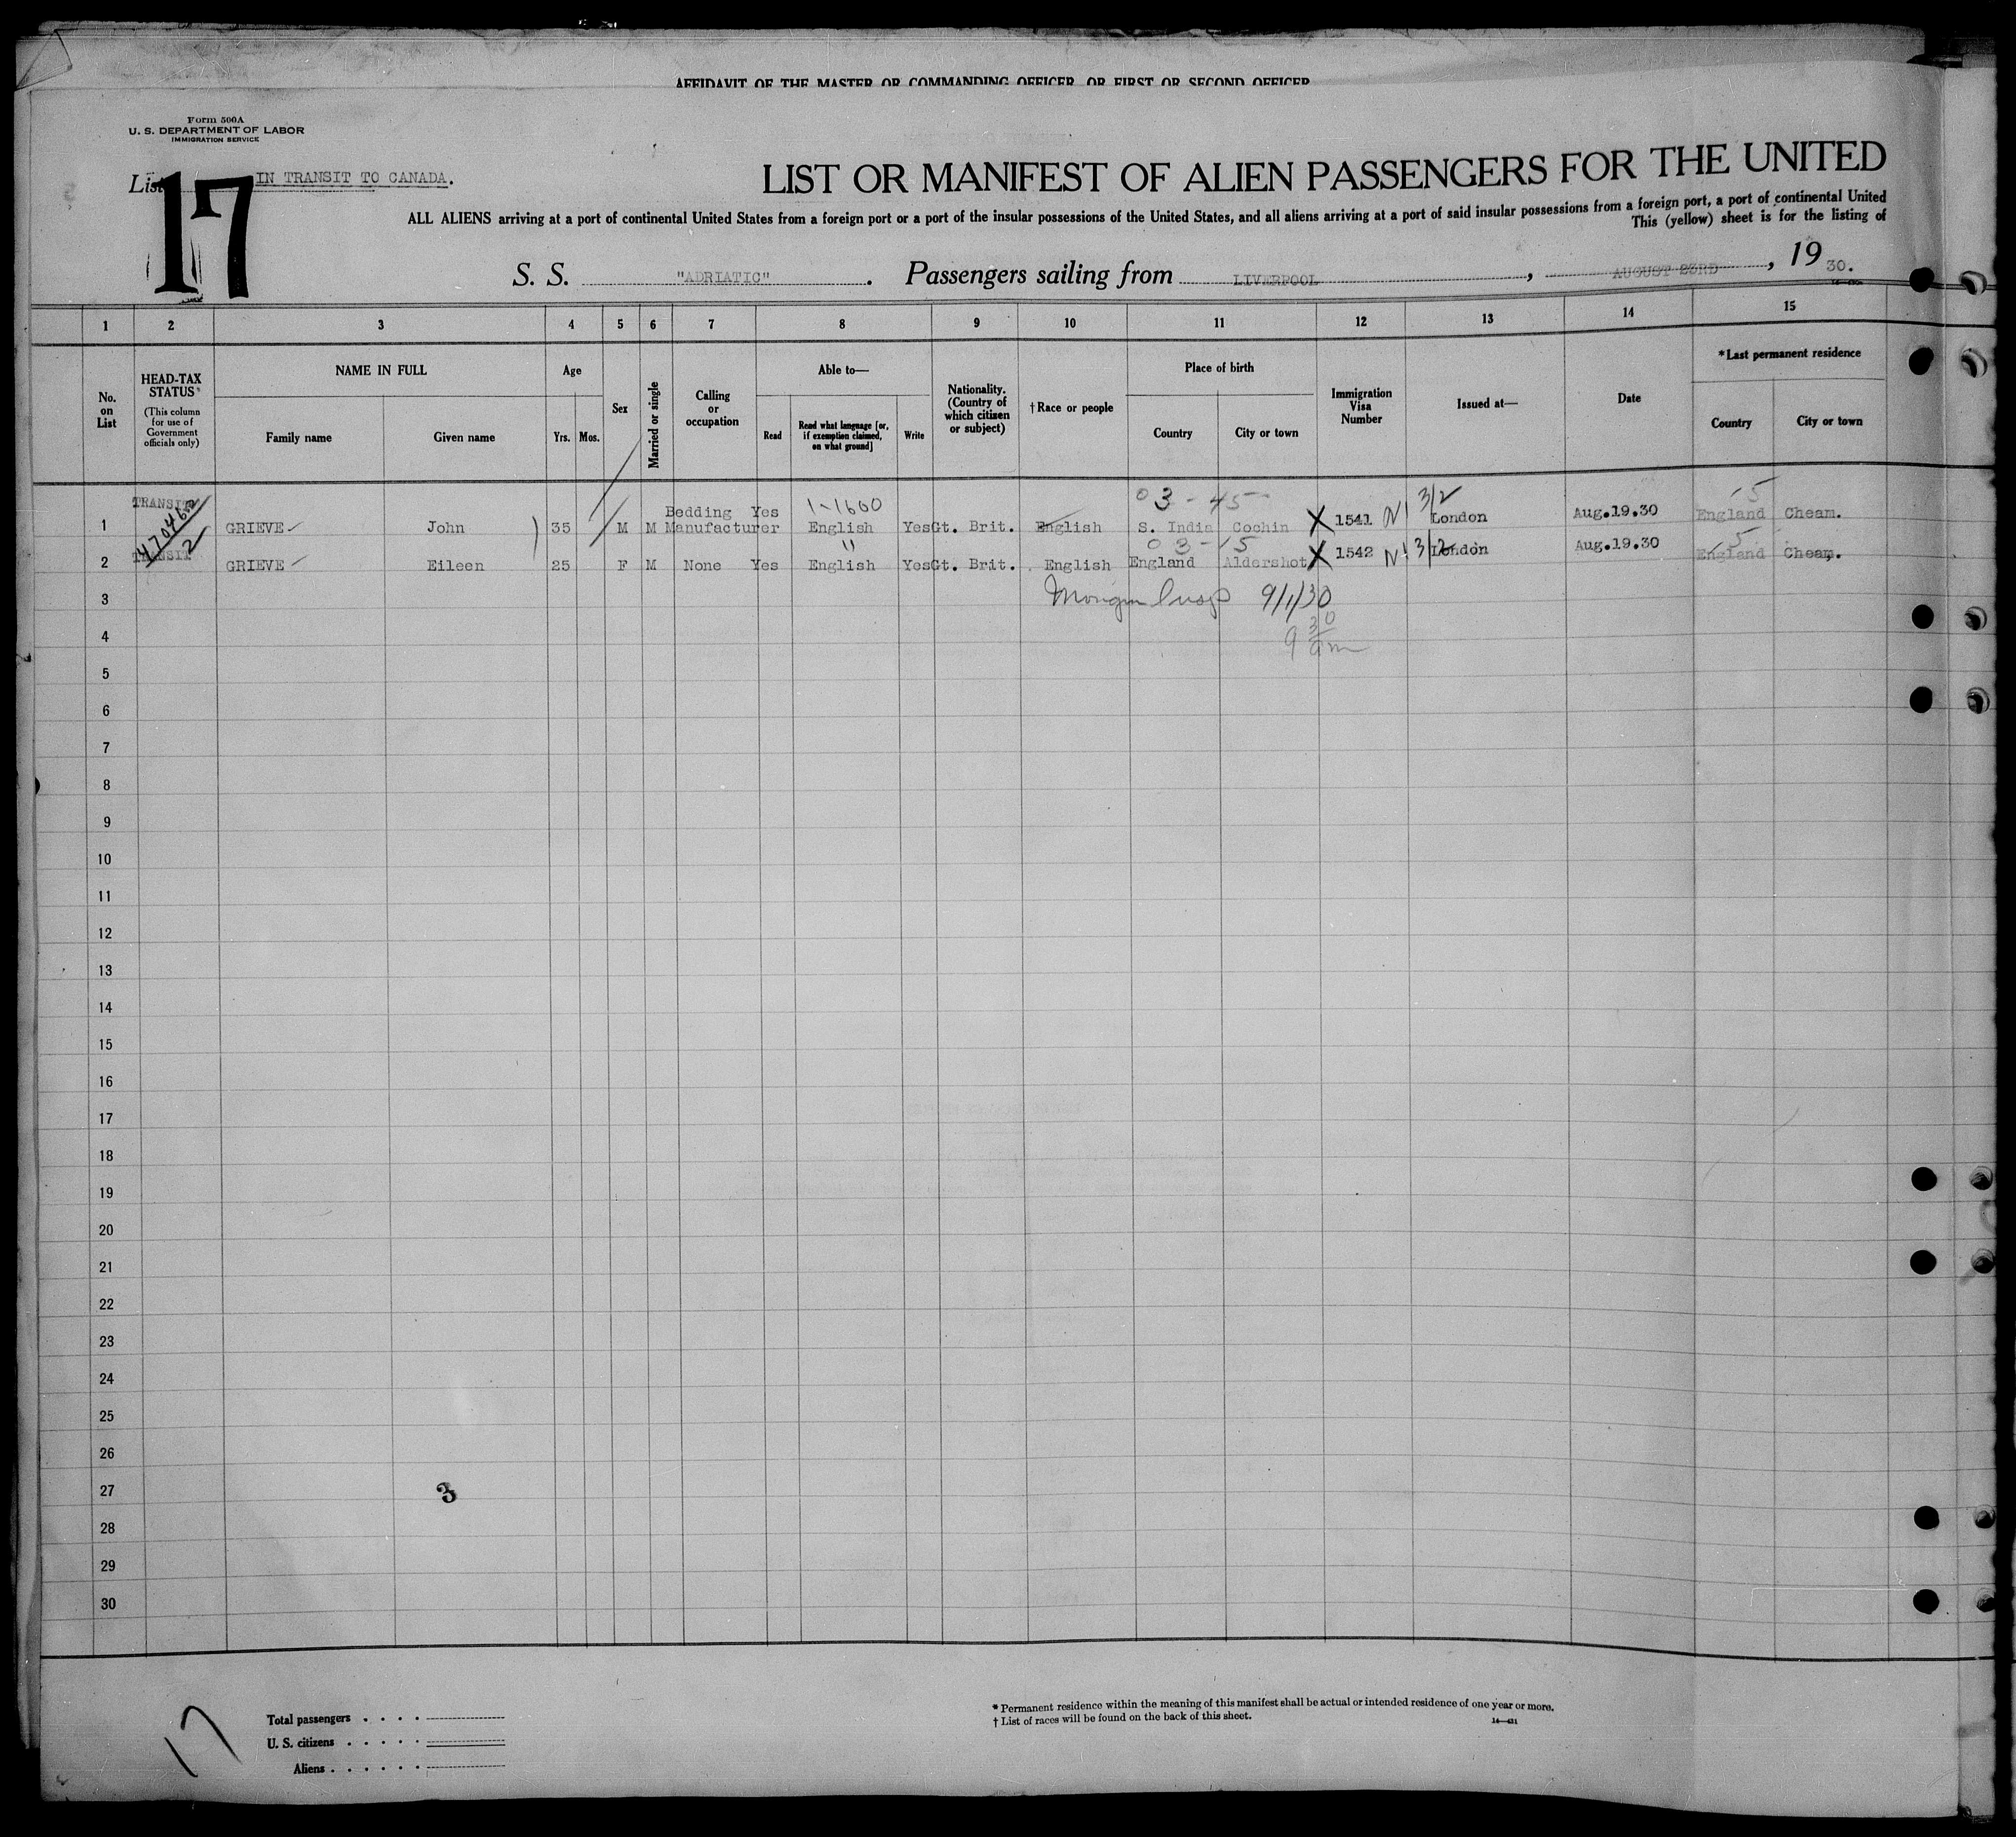 AFFIDAVIT OF THE MASTER OR COMMANDING OFFICER, OR FIRST OR SECOND OFFICER
Form 500A
U. S. DEPARTMENT OF LABOR
IMMIGRATION SERVICE
List IN TRANSIT TO CANADA.
17
LIST OR MANIFEST OF ALIEN PASSENGERS FOR THE UNITED
ALL ALIENS arriving at a port of continental United States from a foreign port or a port of the insular possessions of the United States, and all aliens arriving at a port of said insular possessions from a foreign port, a port of continental United
This (yellow) sheet is for the listing of
S. S. "ADRIATIC". Passengers sailing from LIVERPOOL, AUGUST 23RD, 19 30.
1 2 3 4 5 6 7 8 9 10 11 12 13 14 15
No. on List
HEAD-TAX STATUS
(This column for use of Government officials only)
NAME IN FULL
Family name
Given name
Age
Yrs. Mos.
Sex
Married or single
Calling or occupation
Able to—
Read
Read what language [or, if exemption claimed, on what ground]
Write
Nationality. (Country of which citizen or subject)
† Race or people
Place of birth
Country
City or town
Immigration Visa Number
Issued at—
Date
* Last permanent residence
Country
City or town
TRANSIT 1-1600 03-45 3/2 5
1 4704612 GRIEVE John 35 M M Bedding Manufacturer Yes English Yes Gt. Brit. English S. India Cochin X 1541 London Aug.19.30 England Cheam.
2 " 03-15 3/2 5
2 TRANSIT GRIEVE Eileen 25 F M None Yes English Yes Gt. Brit. English England Aldershot X 1542 London Aug.19.30 England Cheam.
3 Insp 9/1/30
4 9 30 am
5
6
7
8
9
10
11
12
13
14
15
16
17
18
19
20
21
22
23
24
25
26
27 3
28
29
30
17
Total passengers
U. S. citizens
Aliens
* Permanent residence within the meaning of this manifest shall be actual or intended residence of one year or more.
† List of races will be found on the back of this sheet.